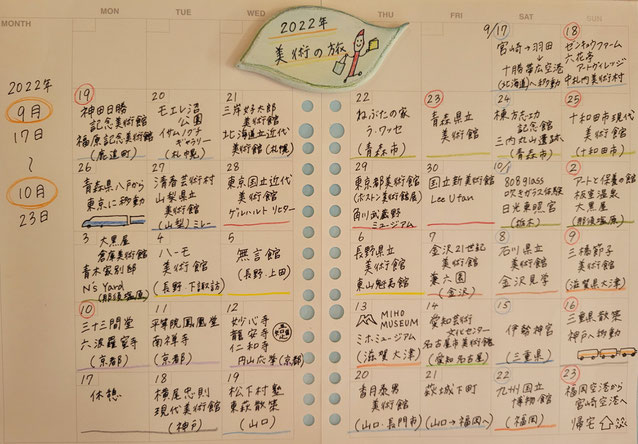 2022年
美術の旅
MONTH
MON
TUE
WED
THU
FRI
SAT
SUN
2022年
9月
17日
〜
10月
23日
9/17
宮崎→羽田
↓
十勝帯広空港
(北海道)へ移動
18
ゼンキュウファーム
六花亭
アートヴィレッジ
中札内美術村
19
神田日勝
記念美術館
福原記念美術館
(鹿追町)
20
モエレ沼
公園
イサムノグチ
ギャラリー
(札幌)
21
三岸好太郎
美術館
北海道立近代
美術館(札幌)
22
ねぶたの家
ラ・ワッセ
(青森市)
23
青森県立
美術館
24
棟方志功
記念館
三内丸山遺跡
(青森市)
25
十和田市現代
美術館
(十和田市)
26
青森県八戸から
東京に移動
27
清春芸術村
山梨県立
美術館
(山梨)ミレー
28
東京国立近代
美術館
ゲルハルト リヒター
29
東京都美術館
(ボストン美術館展)
角川武蔵野
ミュージアム
30
国立新美術館
Lee Ufan
10/1
808 glass
吹きガラス体験
日光東照宮
(栃木)
2
アートと保養の館
板室温泉
大黒屋
(那須塩原)
3
大黒屋
倉庫美術館
青木家別邸
N's Yard
(那須塩原)
4
ハーモ
美術館
(長野・下諏訪)
5
無言館
(長野・上田)
6
長野県立
美術館
東山魁夷館
7
金沢21世紀
美術館
兼六園
(金沢)
8
石川県立
美術館
金沢見学
9
三橋節子
美術館
(滋賀県大津)
10
三十三間堂
六波羅蜜寺
(京都)
11
平等院鳳凰堂
南禅寺
(京都)
12
妙心寺
龍安寺
仁和寺
円山応挙(京都)
13
MIHO
MUSEUM
ミホミュージアム
(滋賀大津)
14
愛知芸術
文化センター
名古屋市美術館
(愛知名古屋)
15
伊勢神宮
(三重県)
16
三重県散策
神戸へ移動
17
休憩
18
横尾忠則
現代美術館
(神戸)
19
松下村塾
東萩散策
(山口)
20
香月泰男
美術館
(山口・長門市)
21
萩城下町
(山口→福岡へ)
22
九州国立
博物館
(福岡)
23
福岡空港から
宮崎空港へ
帰宅